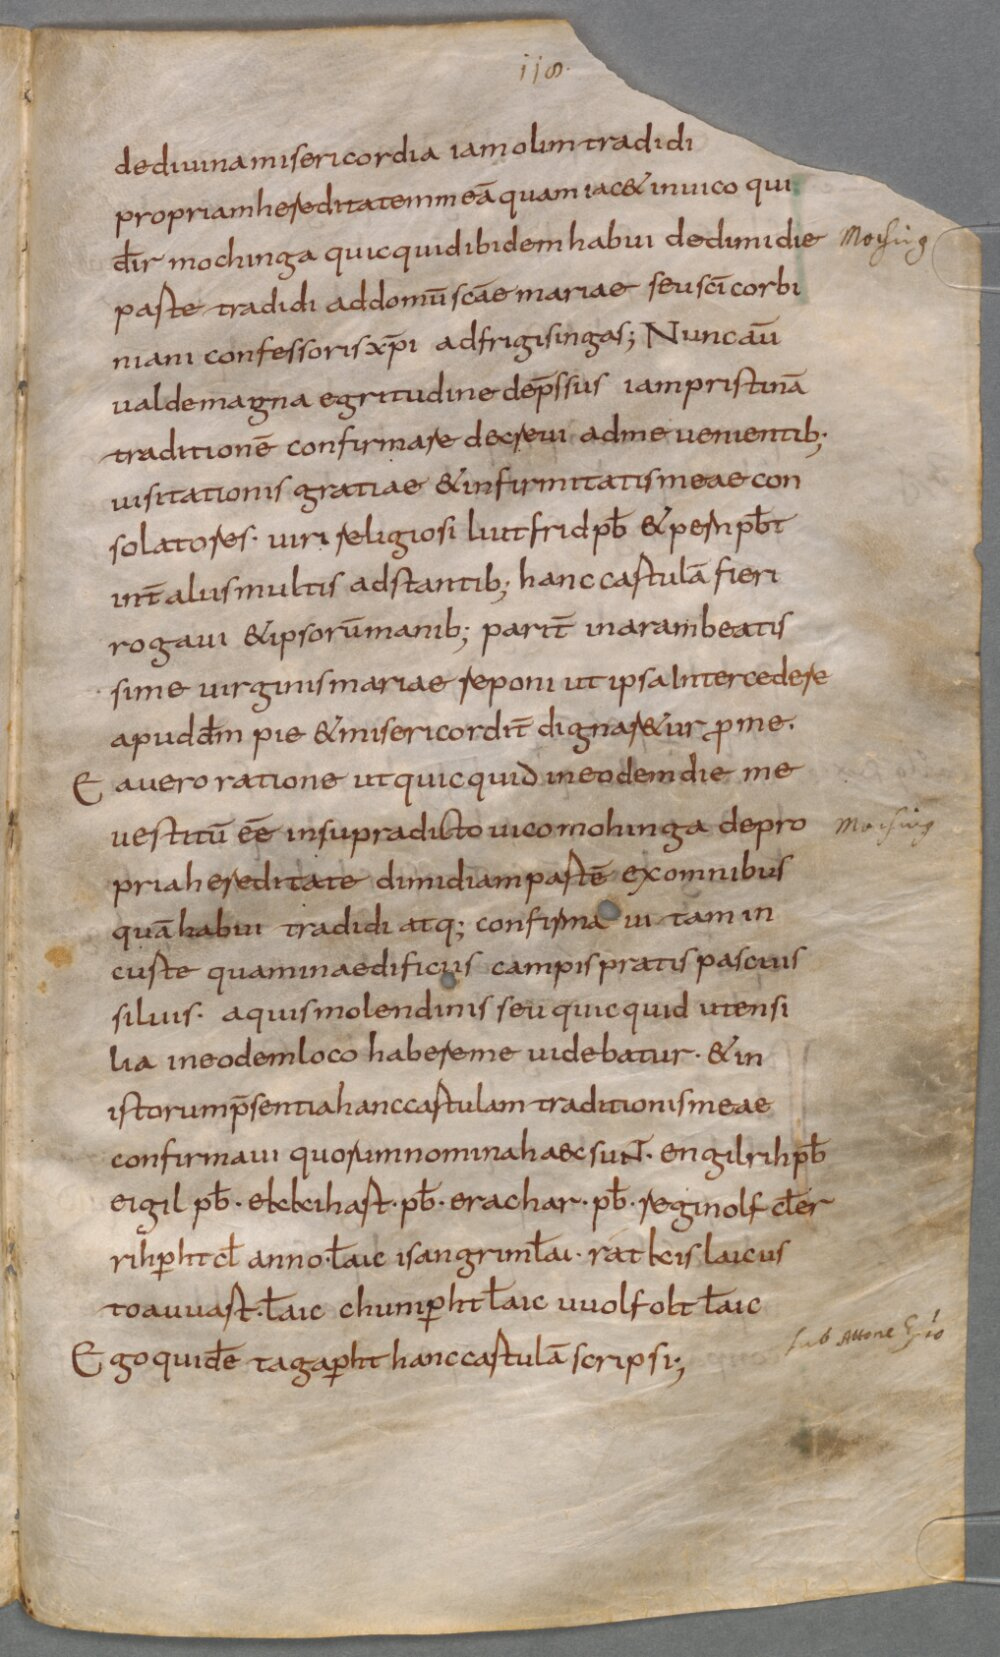 118.
de diuina misericordia iam olim tradidi
propriam hereditatem meā quam iac& in uico qui
dr̄ mochinga quicquid ibidem habui de dimidie Moching
parte tradidi ad domū scāe mariae seu scī corbi
niani confessoris xp̄i ad frigisingas; Nunc aū
ualde magna egritudine dep̄ssus iam pristinā
traditionē confirmare decreui ad me uenientib;
uisitationis gratiae & infirmitatis meae con
solatores· uiri religiosi liutfrid pb̄ & peṙn pb̄t
int̄ aliis multis adstantib; hanc cartulā fieri
rogaui & ipsorū manib; parit̄ in aram beatis
sime uirginis mariae reponi ut ipsa Intercedere
apud dm̄ pie & misericordit̄ dignar&ur ꝓ me.
Ea uero ratione ut quicquid in eodem die me
uestitū ēe in supradicto uico mohinga de pro Moching
pria hereditate dimidiam partē ex omnibus
quā habui tradidi atq; confirma ui tam in
curte quam in aedificiis campis pratis pascuis
siluis· aquis molendinis seu quicquid utensi
lia in eodem loco habere me uidebatur· & in
istorum p̄sentia hanc cartulam traditionis meae
confirmaui quorum nomina haec suNT· engilrih pb̄
eigil pb̄· ekkihart· pb̄· erachar· pb̄· reginolf cler̄
rihꝑht cl̄ anno· laīc isangrim laī· ratkis laicus
toauuart· laīc chuniꝑht laīc uuolfolt laīc
Ego quidē tagaꝑht hanc cartulā scripsi; sub Attone Ep̄o